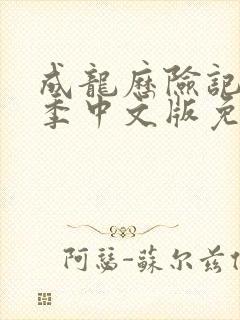 成龍歷險記
季中文版免
阿瑟-蘇尔兹